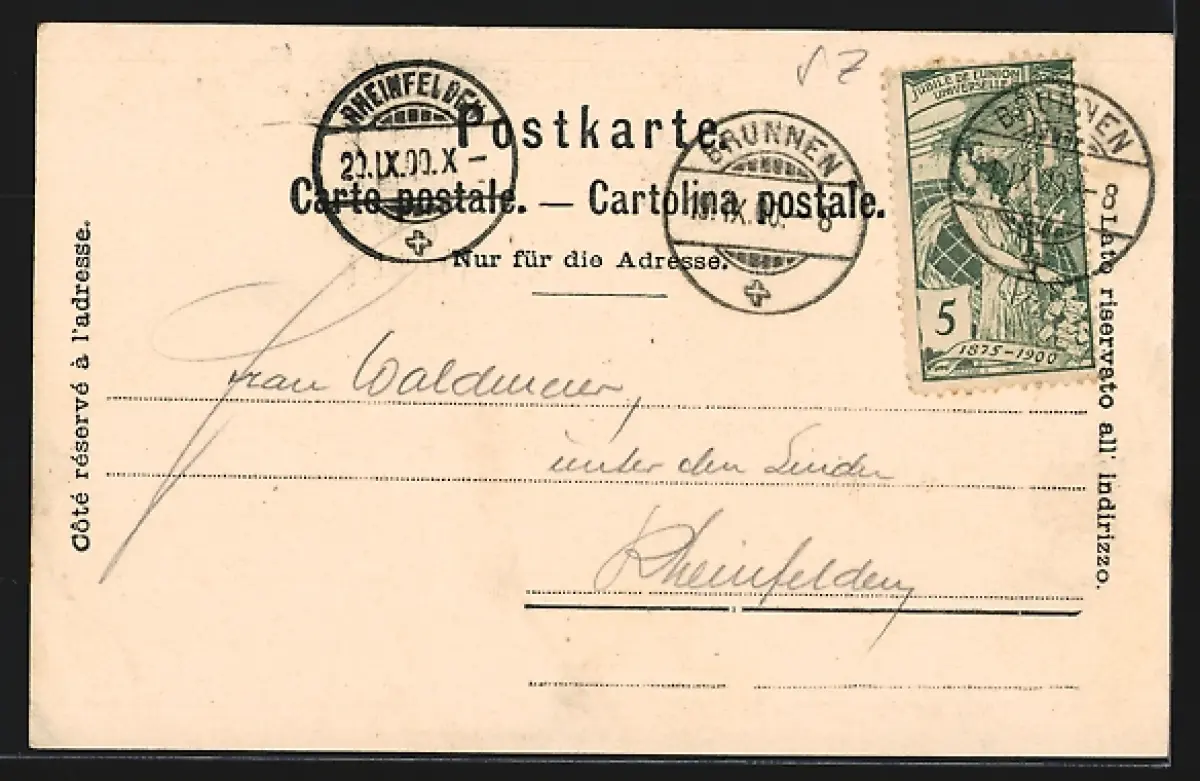 Postkarte.
Carte postale. — Cartolina postale.
Nur für die Adresse.
RHEINFELDEN
20.IX.00.X-
BRUNNEN
IX.00. - 8
JUBILÉ DE L'UNION
UNIVERSELLE
5
1875-1900
BRUNNEN
IX.00. - 8
Côté réservé à l'adresse.
Lato riservato all' indirizzo.
Frau Waldmeier,
unter den Linden
Rheinfelden